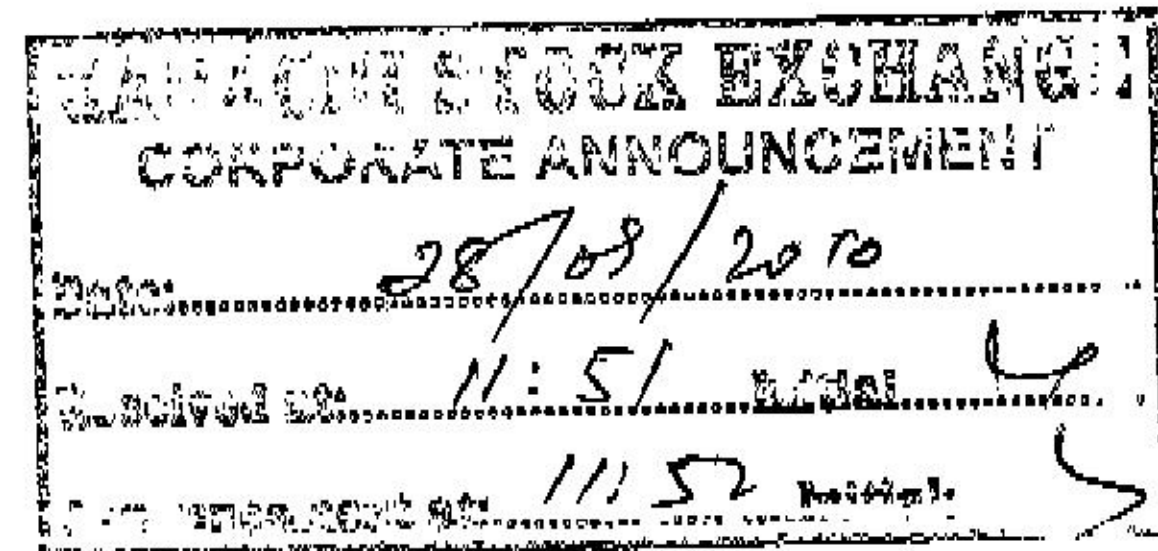 KARACHI STOCK EXCHANGE
CORPORATE ANNOUNCEMENT
Date: 28/09/2010
Received at: 11:51 Initial
announced at: 11:52 Initial: